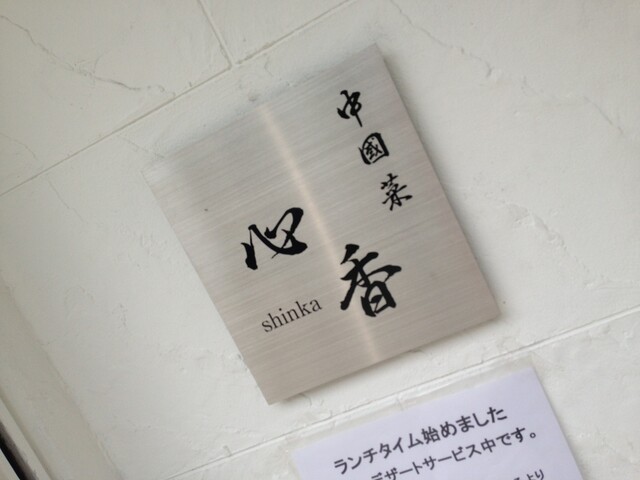 中國菜
心香
shinka
ランチタイム始めました
デザートサービス中です。
より